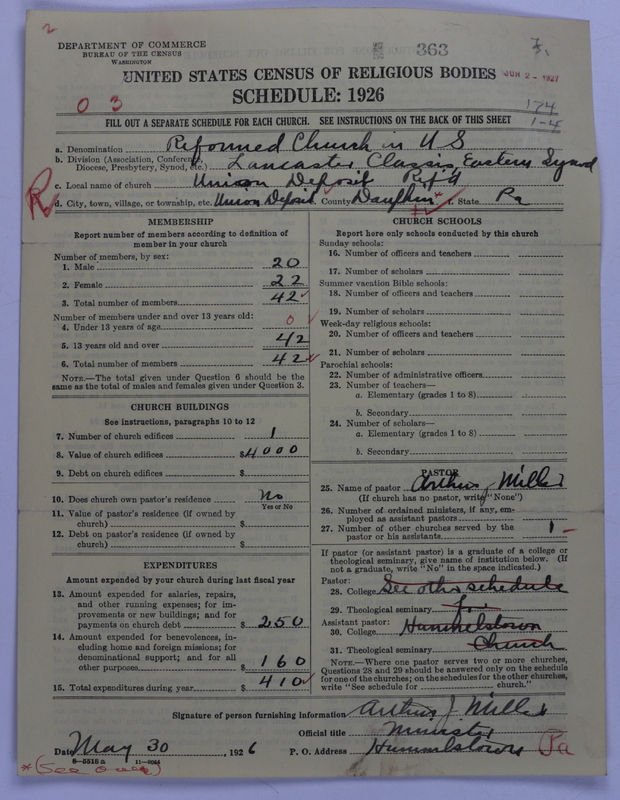 2
DEPARTMENT OF COMMERCE
BUREAU OF THE CENSUS
WASHINGTON
363
UNITED STATES CENSUS OF RELIGIOUS BODIES
JUN 2 - 1927
SCHEDULE: 1926
0 3
174
1-4
FILL OUT A SEPARATE SCHEDULE FOR EACH CHURCH. SEE INSTRUCTIONS ON THE BACK OF THIS SHEET
a. Denomination Reformed Church in U S
b. Division (Association, Conference, Diocese, Presbytery, Synod, etc.) Lancaster Classis, Eastern Synod
c. Local name of church Union Deposit Ref'd
R
d. City, town, village, or township, etc. Union Deposit County Dauphin f. State Pa
MEMBERSHIP
Report number of members according to definition of
member in your church
Number of members, by sex:
1. Male 20
2. Female 22
3. Total number of members 42
Number of members under and over 13 years old:
4. Under 13 years of age 0
5. 13 years old and over 42
6. Total number of members 42
NOTE.—The total given under Question 6 should be the
same as the total of males and females given under Question 3.
CHURCH BUILDINGS
See instructions, paragraphs 10 to 12
7. Number of church edifices 1
8. Value of church edifices $4000
9. Debt on church edifices $
10. Does church own pastor's residence No
Yes or No
11. Value of pastor's residence (if owned by
church) $
12. Debt on pastor's residence (if owned by
church) $
EXPENDITURES
Amount expended by your church during last fiscal year
13. Amount expended for salaries, repairs,
and other running expenses; for im-
provements or new buildings; and for
payments on church debt $ 250
14. Amount expended for benevolences, in-
cluding home and foreign missions; for
denominational support; and for all
other purposes $ 160
15. Total expenditures during year $ 410
CHURCH SCHOOLS
Report here only schools conducted by this church
Sunday schools:
16. Number of officers and teachers
17. Number of scholars
Summer vacation Bible schools:
18. Number of officers and teachers
19. Number of scholars
Week-day religious schools:
20. Number of officers and teachers
21. Number of scholars
Parochial schools:
22. Number of administrative officers
23. Number of teachers—
a. Elementary (grades 1 to 8)
b. Secondary
24. Number of scholars—
a. Elementary (grades 1 to 8)
b. Secondary
PASTOR
25. Name of pastor Arthur J Miller
(If church has no pastor, write "None")
26. Number of ordained ministers, if any, em-
ployed as assistant pastors
27. Number of other churches served by the
pastor or his assistants 1
If pastor (or assistant pastor) is a graduate of a college or
theological seminary, give name of institution below. (If
not a graduate, write "No" in the space indicated.)
Pastor:
28. College See other schedule
29. Theological seminary for
Assistant pastor:
30. College Hummelstown
31. Theological seminary Church
NOTE.—Where one pastor serves two or more churches,
Questions 28 and 29 should be answered only on the schedule
for one of the churches; on the schedules for the other churches,
write "See schedule for church."
Signature of person furnishing information Arthur J. Miller
Official title Minister
Date May 30, 1926 P. O. Address Hummelstown Pa
8—5516 a
*(See over)